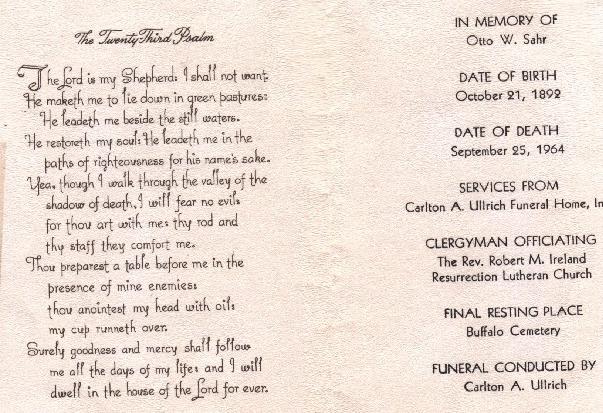 The Twenty-Third Psalm
The Lord is my Shepherd: I shall not want:
He maketh me to lie down in green pastures:
He leadeth me beside the still waters.
He restoreth my soul: He leadeth me in the
paths of righteousness for his name's sake.
Yea, though I walk through the valley of the
shadow of death, I will fear no evil:
for thou art with me: thy rod and
thy staff they comfort me.
Thou preparest a table before me in the
presence of mine enemies:
thou anointest my head with oil:
my cup runneth over.
Surely goodness and mercy shall follow
me all the days of my life: and I will
dwell in the house of the Lord for ever.
IN MEMORY OF
Otto W. Sahr
DATE OF BIRTH
October 21, 1892
DATE OF DEATH
September 25, 1964
SERVICES FROM
Carlton A. Ullrich Funeral Home, In
CLERGYMAN OFFICIATING
The Rev. Robert M. Ireland
Resurrection Lutheran Church
FINAL RESTING PLACE
Buffalo Cemetery
FUNERAL CONDUCTED BY
Carlton A. Ullrich